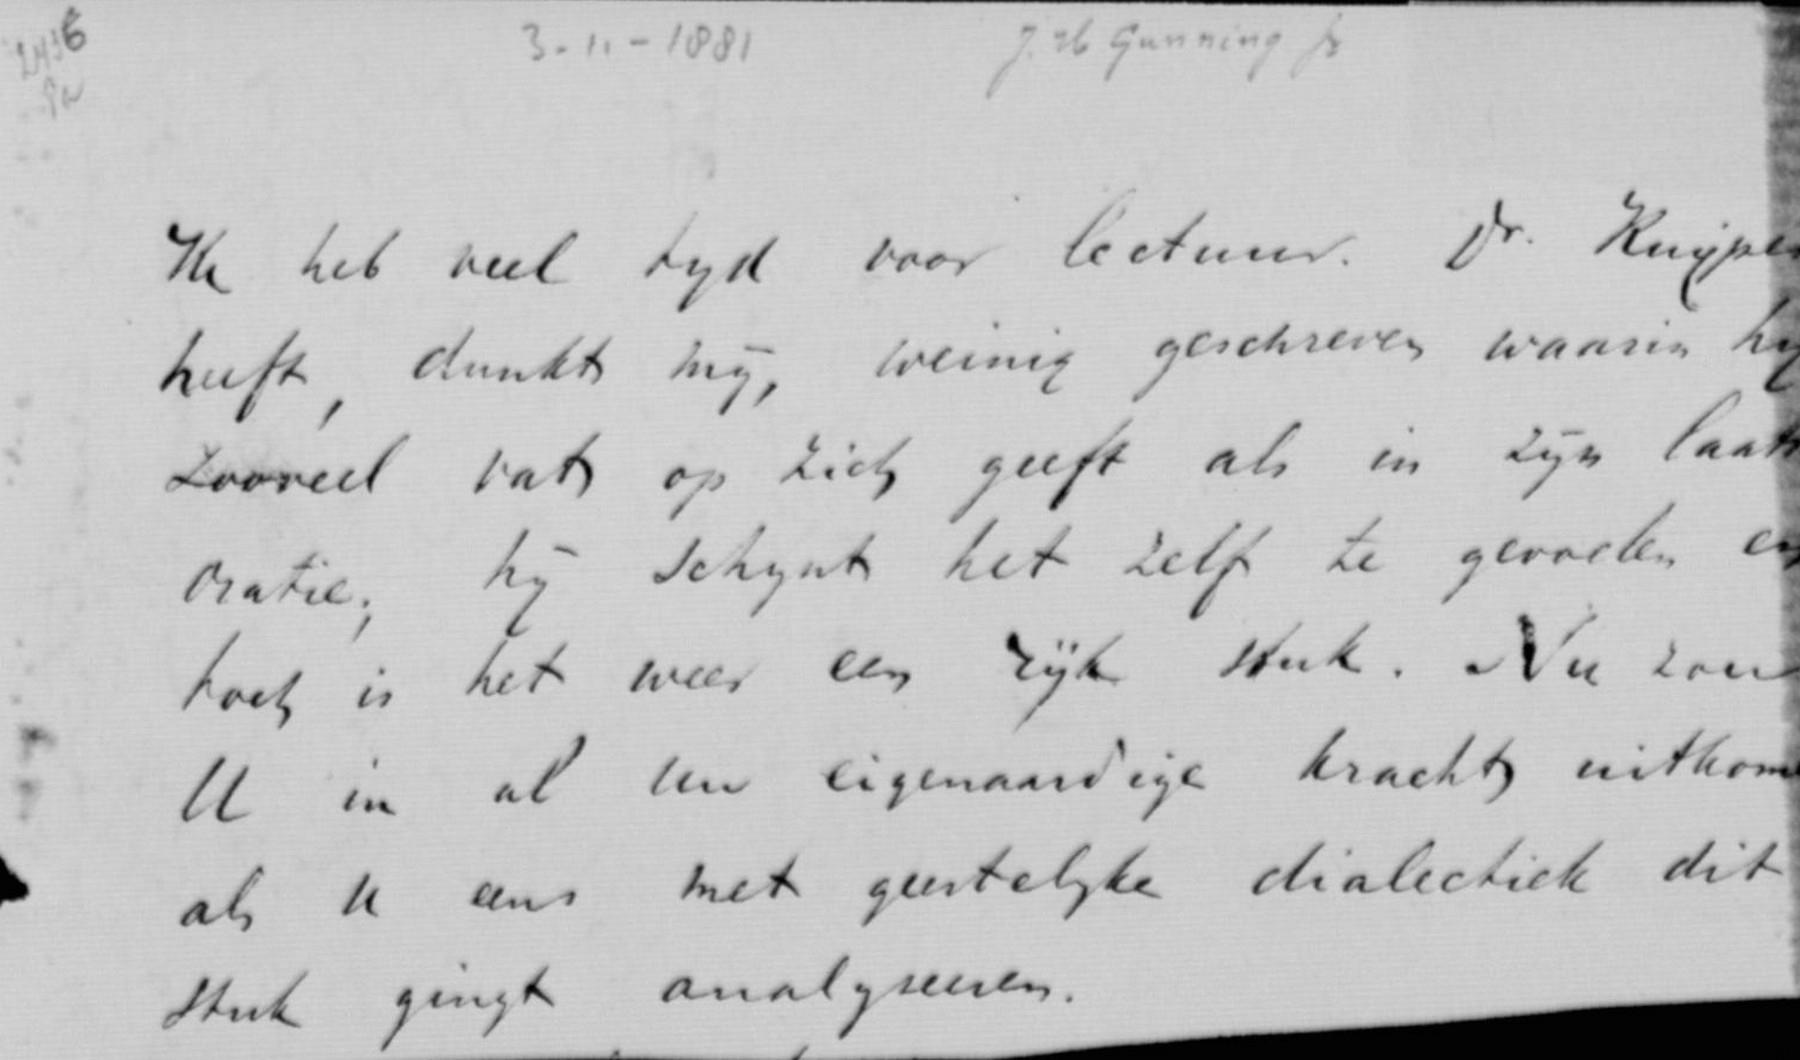 3-11-1881 J. H Gunning Jr
Ik heb veel tyd voor lectuur. Dr. Kuyper
heeft, dunkt mij, weinig geschreven waarin hy
zooveel vat op zich geeft als in zijn laats
oratie; hij schynt het zelf te gevoelen en
toch is het weer een rijk stuk. Nu zou
U in al uw eigenaardige kracht uitkome
als u eens met geestelyke dialectiek dit
stuk gingt analyseeren.